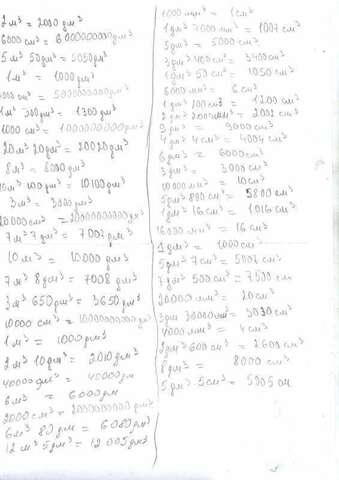 2м³ = 2000 дм³
6000 см³ = 6000000000 дм³
5 м³ 50 дм³ = 5050 дм³
1м³ = 1000 дм³
000 см³ = 5000000000 дм³
1м³ 300 дм³ = 1300 дм³
1000 см³ = 1000000000 дм³
20 м³ 20 дм³ = 20020 дм³
8м³ = 8000 дм³
10м³ 100 дм³ = 10100 дм³
3м³ = 3000 дм³
20000 см³ = 20000000000 дм³
7м³ 7 дм³ = 7007 дм³
10 м³ = 10000 дм³
7м³ 8 дм³ = 7008 дм³
3м³ 650 дм³ = 3650 дм³
10000 см³ = 10000000000 дм³
1м³ = 1000 дм³
2м³ 10 дм³ = 2010 дм³
40000 дм³ = 40000 дм
6м³ = 6000 дм
2000 см³ = 2000000000 дм³
6м³ 80 дм = 6080 дм³
12 м³ 5 дм³ = 12005 дм³
1000 мм³ = 1 см³
1 дм³ 7000 мм³ = 1007 см³
5 дм³ = 5000 см³
3 дм³ 400 см³ = 3400 см³
1 дм³ 50 см³ = 1050 см³
6000 мм³ = 6 см³
1 дм³ 200 см³ = 1200 см³
2 дм³ 2000 мм³ = 2002 см³
9 дм³ = 9000 см³
4 дм³ 4 см³ = 4004 см³
6 дм³ = 6000 см³
3 дм³ = 3000 см³
10000 мм³ = 10 см³
5 дм³ 800 см³ = 5800 см³
1 дм³ 16 см³ = 1016 см³
16000 мм³ = 16 см³
1 дм³ = 1000 см³
5 дм³ 7 см³ = 5007 см³
7 дм³ 500 см³ = 7500 см
20000 мм³ = 20 см³
3 дм 30000 мм³ = 3030 см³
4000 мм³ = 4 см³
2 дм³ 600 см³ = 2600 см³
8 дм³ = 8000 см³
5 дм³ 5 см³ = 5005 см